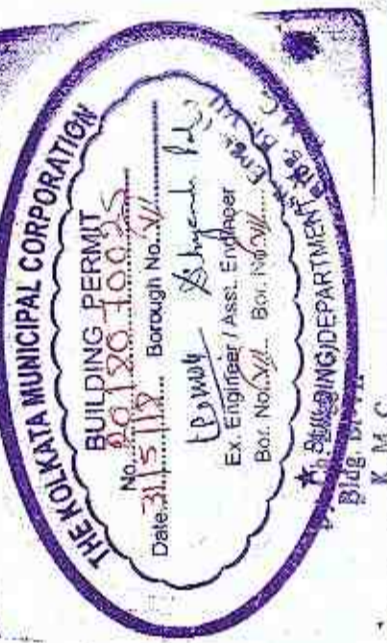 THE KOLKATA MUNICIPAL CORPORATION
BUILDING PERMIT
No. 2012070025
Date. 31/5/12 Borough No. VII
Ex. Engineer / Asst. Engineer
Bor. No. VII Bor. No. VII
★ BUILDING DEPARTMENT
Bldg. Br. VII
K. M. C.